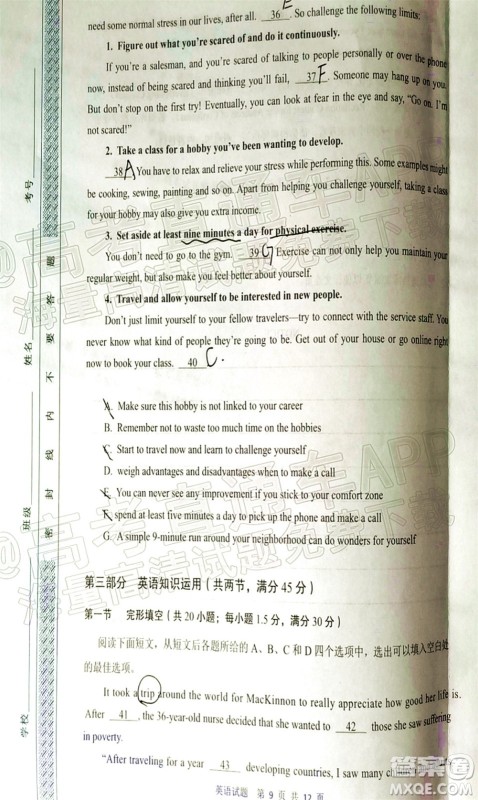 need some normal stress in our lives, after all. 36 E. So challenge the following limits:
1. Figure out what you're scared of and do it continuously.
If you're a salesman, and you're scared of talking to people personally or over the phone
now, instead of being scared and thinking you'll fail, 37 F. Someone may hang up on you.
But don't stop on the first try! Eventually, you can look at fear in the eye and say, "Go on. I'm
not scared!"
2. Take a class for a hobby you've been wanting to develop.
38 A You have to relax and relieve your stress while performing this. Some examples might
be cooking, sewing, painting and so on. Apart from helping you challenge yourself, taking a class
for your hobby may also give you extra income.
3. Set aside at least nine minutes a day for physical exercise.
You don't need to go to the gym. 39 G Exercise can not only help you maintain your
regular weight, but also make you feel better about yourself.
4. Travel and allow yourself to be interested in new people.
Don't just limit yourself to your fellow travelers—try to connect with the service staff. You
never know what kind of people they're going to be. Get out of your house or go online right
now to book your class. 40 C.
A. Make sure this hobby is not linked to your career
B. Remember not to waste too much time on the hobbies
C. Start to travel now and learn to challenge yourself
D. weigh advantages and disadvantages when to make a call
E. You can never see any improvement if you stick to your comfort zone
F. spend at least five minutes a day to pick up the phone and make a call
G. A simple 9-minute run around your neighborhood can do wonders for yourself
第三部分 英语知识运用(共两节,满分 45 分)
第一节 完形填空(共 20 小题;每小题 1.5 分,满分 30 分)
阅读下面短文,从短文后各题所给的 A、B、C 和 D 四个选项中,选出可以填入空白处
的最佳选项。
It took a trip around the world for MacKinnon to really appreciate how good her life is.
After 41, the 36-year-old nurse decided that she wanted to 42 those she saw suffering
in poverty.
"After traveling for a year 43 developing countries, I saw many children
英语试题 第 9 页 共 12 页
考号
姓名
班级
学校
密 封 线 内 不 要 答 题
@高考直通车APP
海量高清试题免费下载
@高考直通车APP
海量高清试题免费下载
答案圈
MXQE.COM